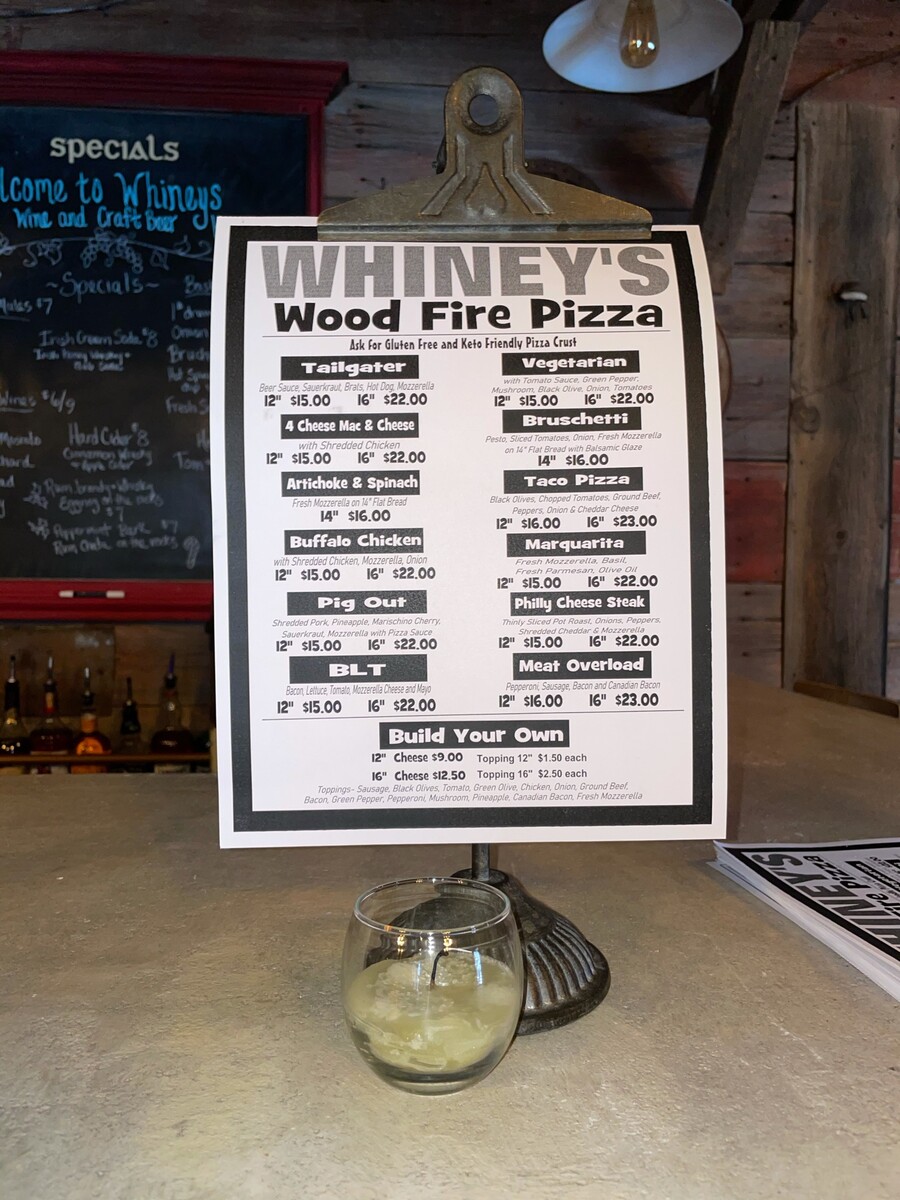 specials
lcome to Whineys
Wine and Craft Beer
~Specials~
Mules $7
Irish Cream Soda $8
Wines $6/9
Moscato
Hard Cider $8
Cinnamon Whisky
Apple Cider
Rum, brandy, whiskey
Eggnog on the rocks
$7
Peppermint Bark $7
Rum Chata on the rocks
WHINEY'S
Wood Fire Pizza
Ask For Gluten Free and Keto Friendly Pizza Crust
Tailgater
Beer Sauce, Sauerkraut, Brats, Hot Dog, Mozzerella
12" $15.00 16" $22.00
4 Cheese Mac & Cheese
with Shredded Chicken
12" $15.00 16" $22.00
Artichoke & Spinach
Fresh Mozzerella on 14" Flat Bread
14" $16.00
Buffalo Chicken
with Shredded Chicken, Mozzerella, Onion
12" $15.00 16" $22.00
Pig Out
Shredded Pork, Pineapple, Marischino Cherry,
Sauerkraut, Mozzerella with Pizza Sauce
12" $15.00 16" $22.00
BLT
Bacon, Lettuce, Tomato, Mozzerella Cheese and Mayo
12" $15.00 16" $22.00
Vegetarian
with Tomato Sauce, Green Pepper,
Mushroom, Black Olive, Onion, Tomatoes
12" $15.00 16" $22.00
Bruschetti
Pesto, Sliced Tomatoes, Onion, Fresh Mozzerella
on 14" Flat Bread with Balsamic Glaze
14" $16.00
Taco Pizza
Black Olives, Chopped Tomatoes, Ground Beef,
Peppers, Onion & Cheddar Cheese
12" $16.00 16" $23.00
Marquarita
Fresh Mozzerella, Basil,
Fresh Parmesan, Olive Oil
12" $15.00 16" $22.00
Philly Cheese Steak
Thinly Sliced Pot Roast, Onions, Peppers,
Shredded Cheddar & Mozzerella
12" $15.00 16" $22.00
Meat Overload
Pepperoni, Sausage, Bacon and Canadian Bacon
12" $16.00 16" $23.00
Build Your Own
12" Cheese $9.00 Topping 12" $1.50 each
16" Cheese $12.50 Topping 16" $2.50 each
Toppings- Sausage, Black Olives, Tomato, Green Olive, Chicken, Onion, Ground Beef,
Bacon, Green Pepper, Pepperoni, Mushroom, Pineapple, Canadian Bacon, Fresh Mozzerella
HINEY'S
re Pizza